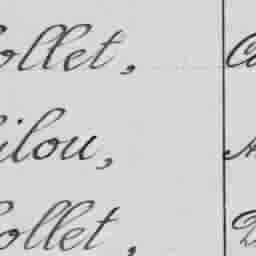 ollet,
ilou,
ollet,